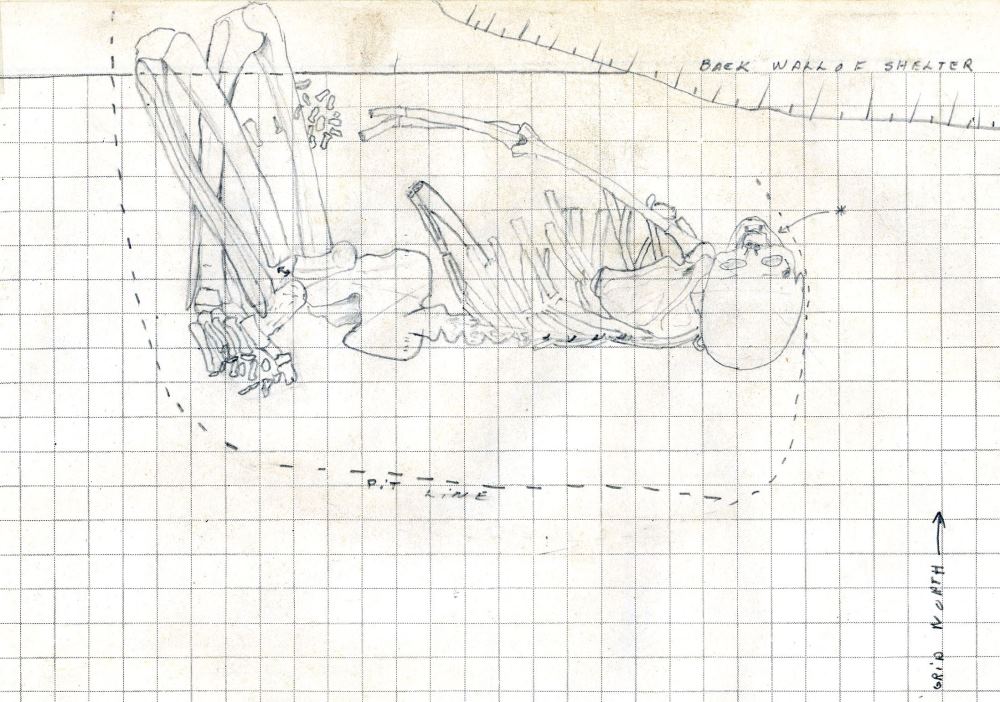 BACK WALL OF SHELTER
*
PIT LINE
GRID NORTH